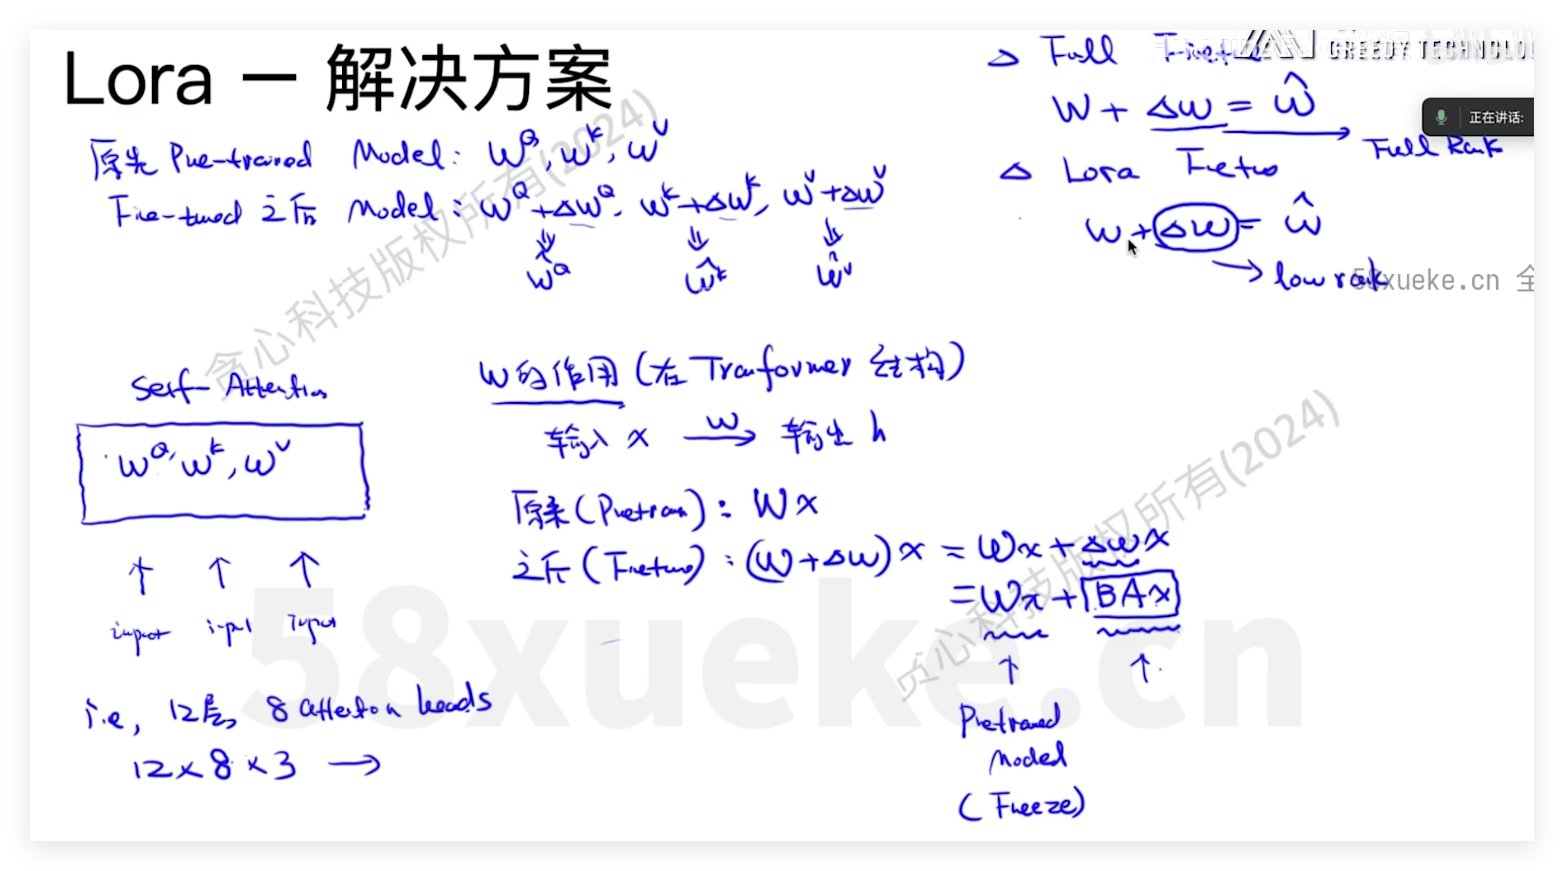 Lora — 解决方案
原先 Pre-trained Model: W^Q, W^K, W^V
Fine-tuned 之后 Model: W^Q+ΔW^Q, W^K+ΔW^K, W^V+ΔW^V
Ŵ^Q Ŵ^K Ŵ^V
△ Full Finetune
GREEDY TECHNOLO
W + ΔW = Ŵ
正在讲话:
Full Rank
△ Lora Finetune
W + ΔW = Ŵ
→ low rank
58xueke.cn 全
Self-Attention
W^Q, W^K, W^V
↑ ↑ ↑
input input input
i.e, 12层, 8 attention heads
12 × 8 × 3 →
W的作用 (在 Tranformer 结构)
输入 x —W→ 输出 h
原来 (Pretrain): Wx
之后 (Finetune): (W+ΔW)x = Wx + ΔWx
= Wx + BAx
↑ ↑
Pretrained
Model
(Freeze)
贪心科技版权所有(2024)
贪心科技版权所有(2024)
58xueke.cn